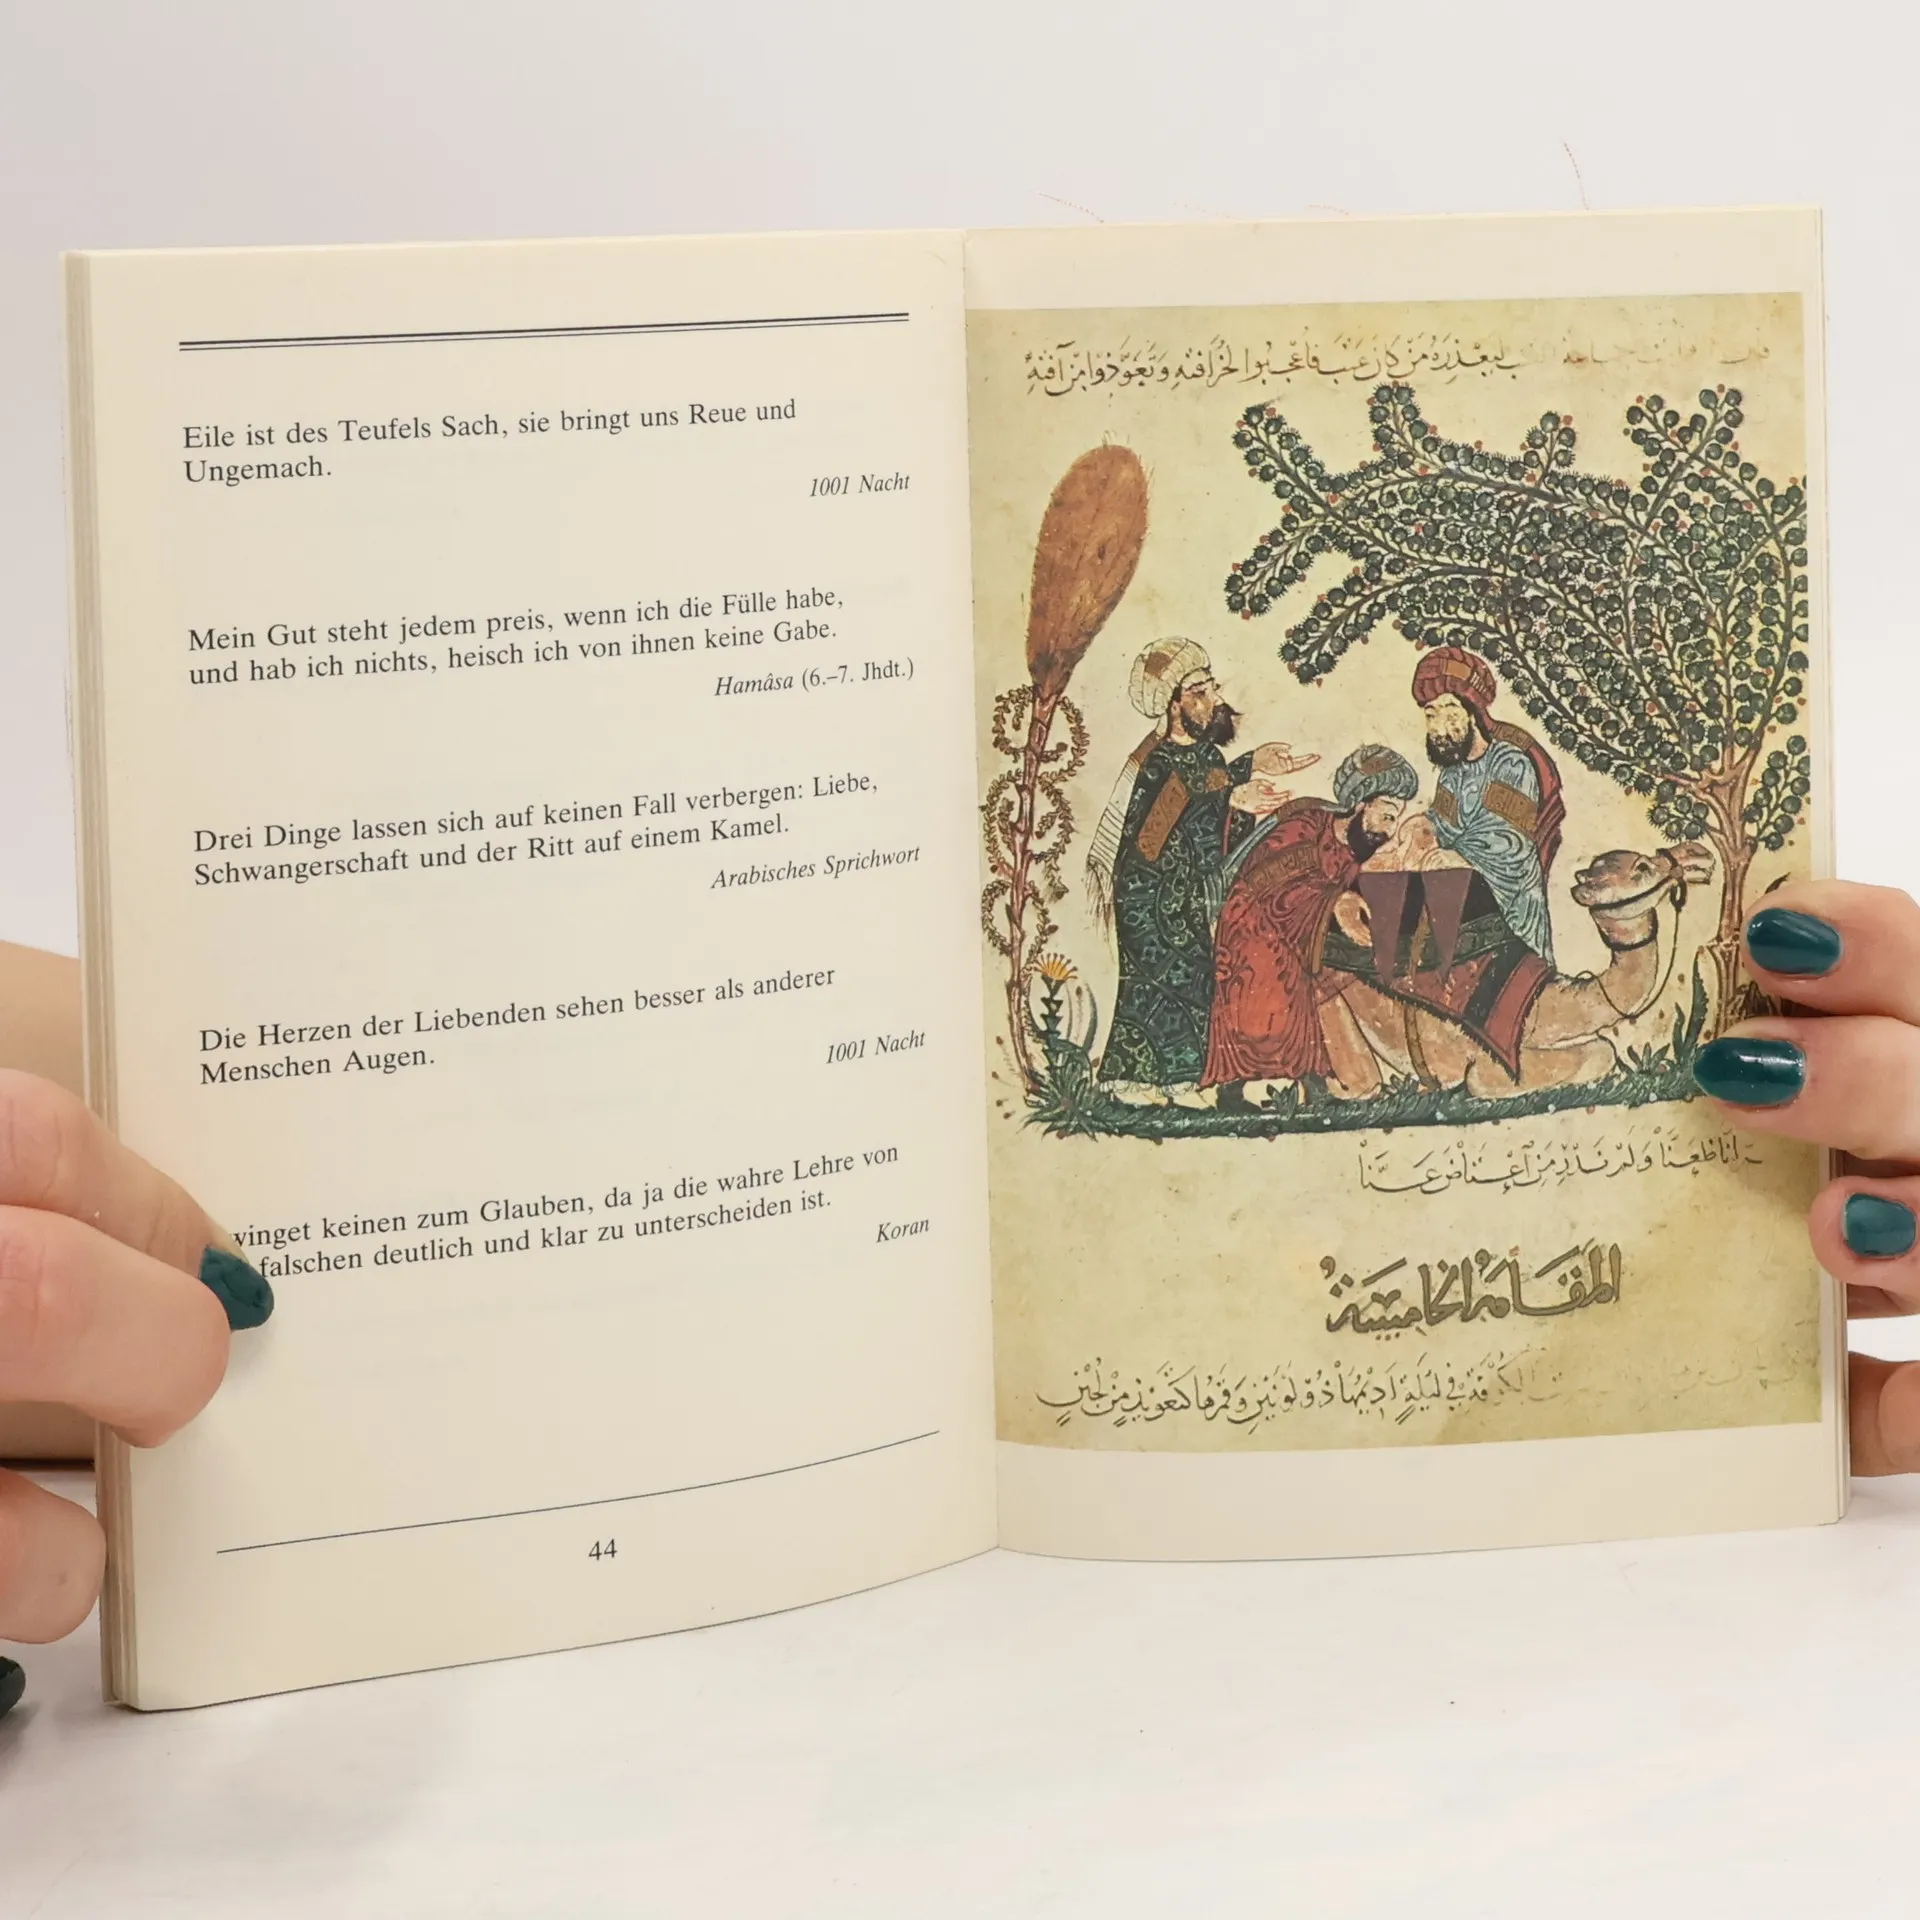 Eile ist des Teufels Sach, sie bringt uns Reue und
Ungemach.
1001 Nacht
Mein Gut steht jedem preis, wenn ich die Fülle habe,
und hab ich nichts, heisch ich von ihnen keine Gabe.
Hamâsa (6.–7. Jhdt.)
Drei Dinge lassen sich auf keinen Fall verbergen: Liebe,
Schwangerschaft und der Ritt auf einem Kamel.
Arabisches Sprichwort
Die Herzen der Liebenden sehen besser als anderer
Menschen Augen.
1001 Nacht
keinen zum Glauben, da ja die wahre Lehre von
falschen deutlich und klar zu unterscheiden ist.
Koran
44
ليعذره من كان عتب فاعجبوا لخرافته وتعوذوا من آفته
انا ظعنا ولم ندر من اعتاض عنا
المقامة الخامسة
في ليلة اديمها ذو لونين وقمرها كتعويذ من لجين